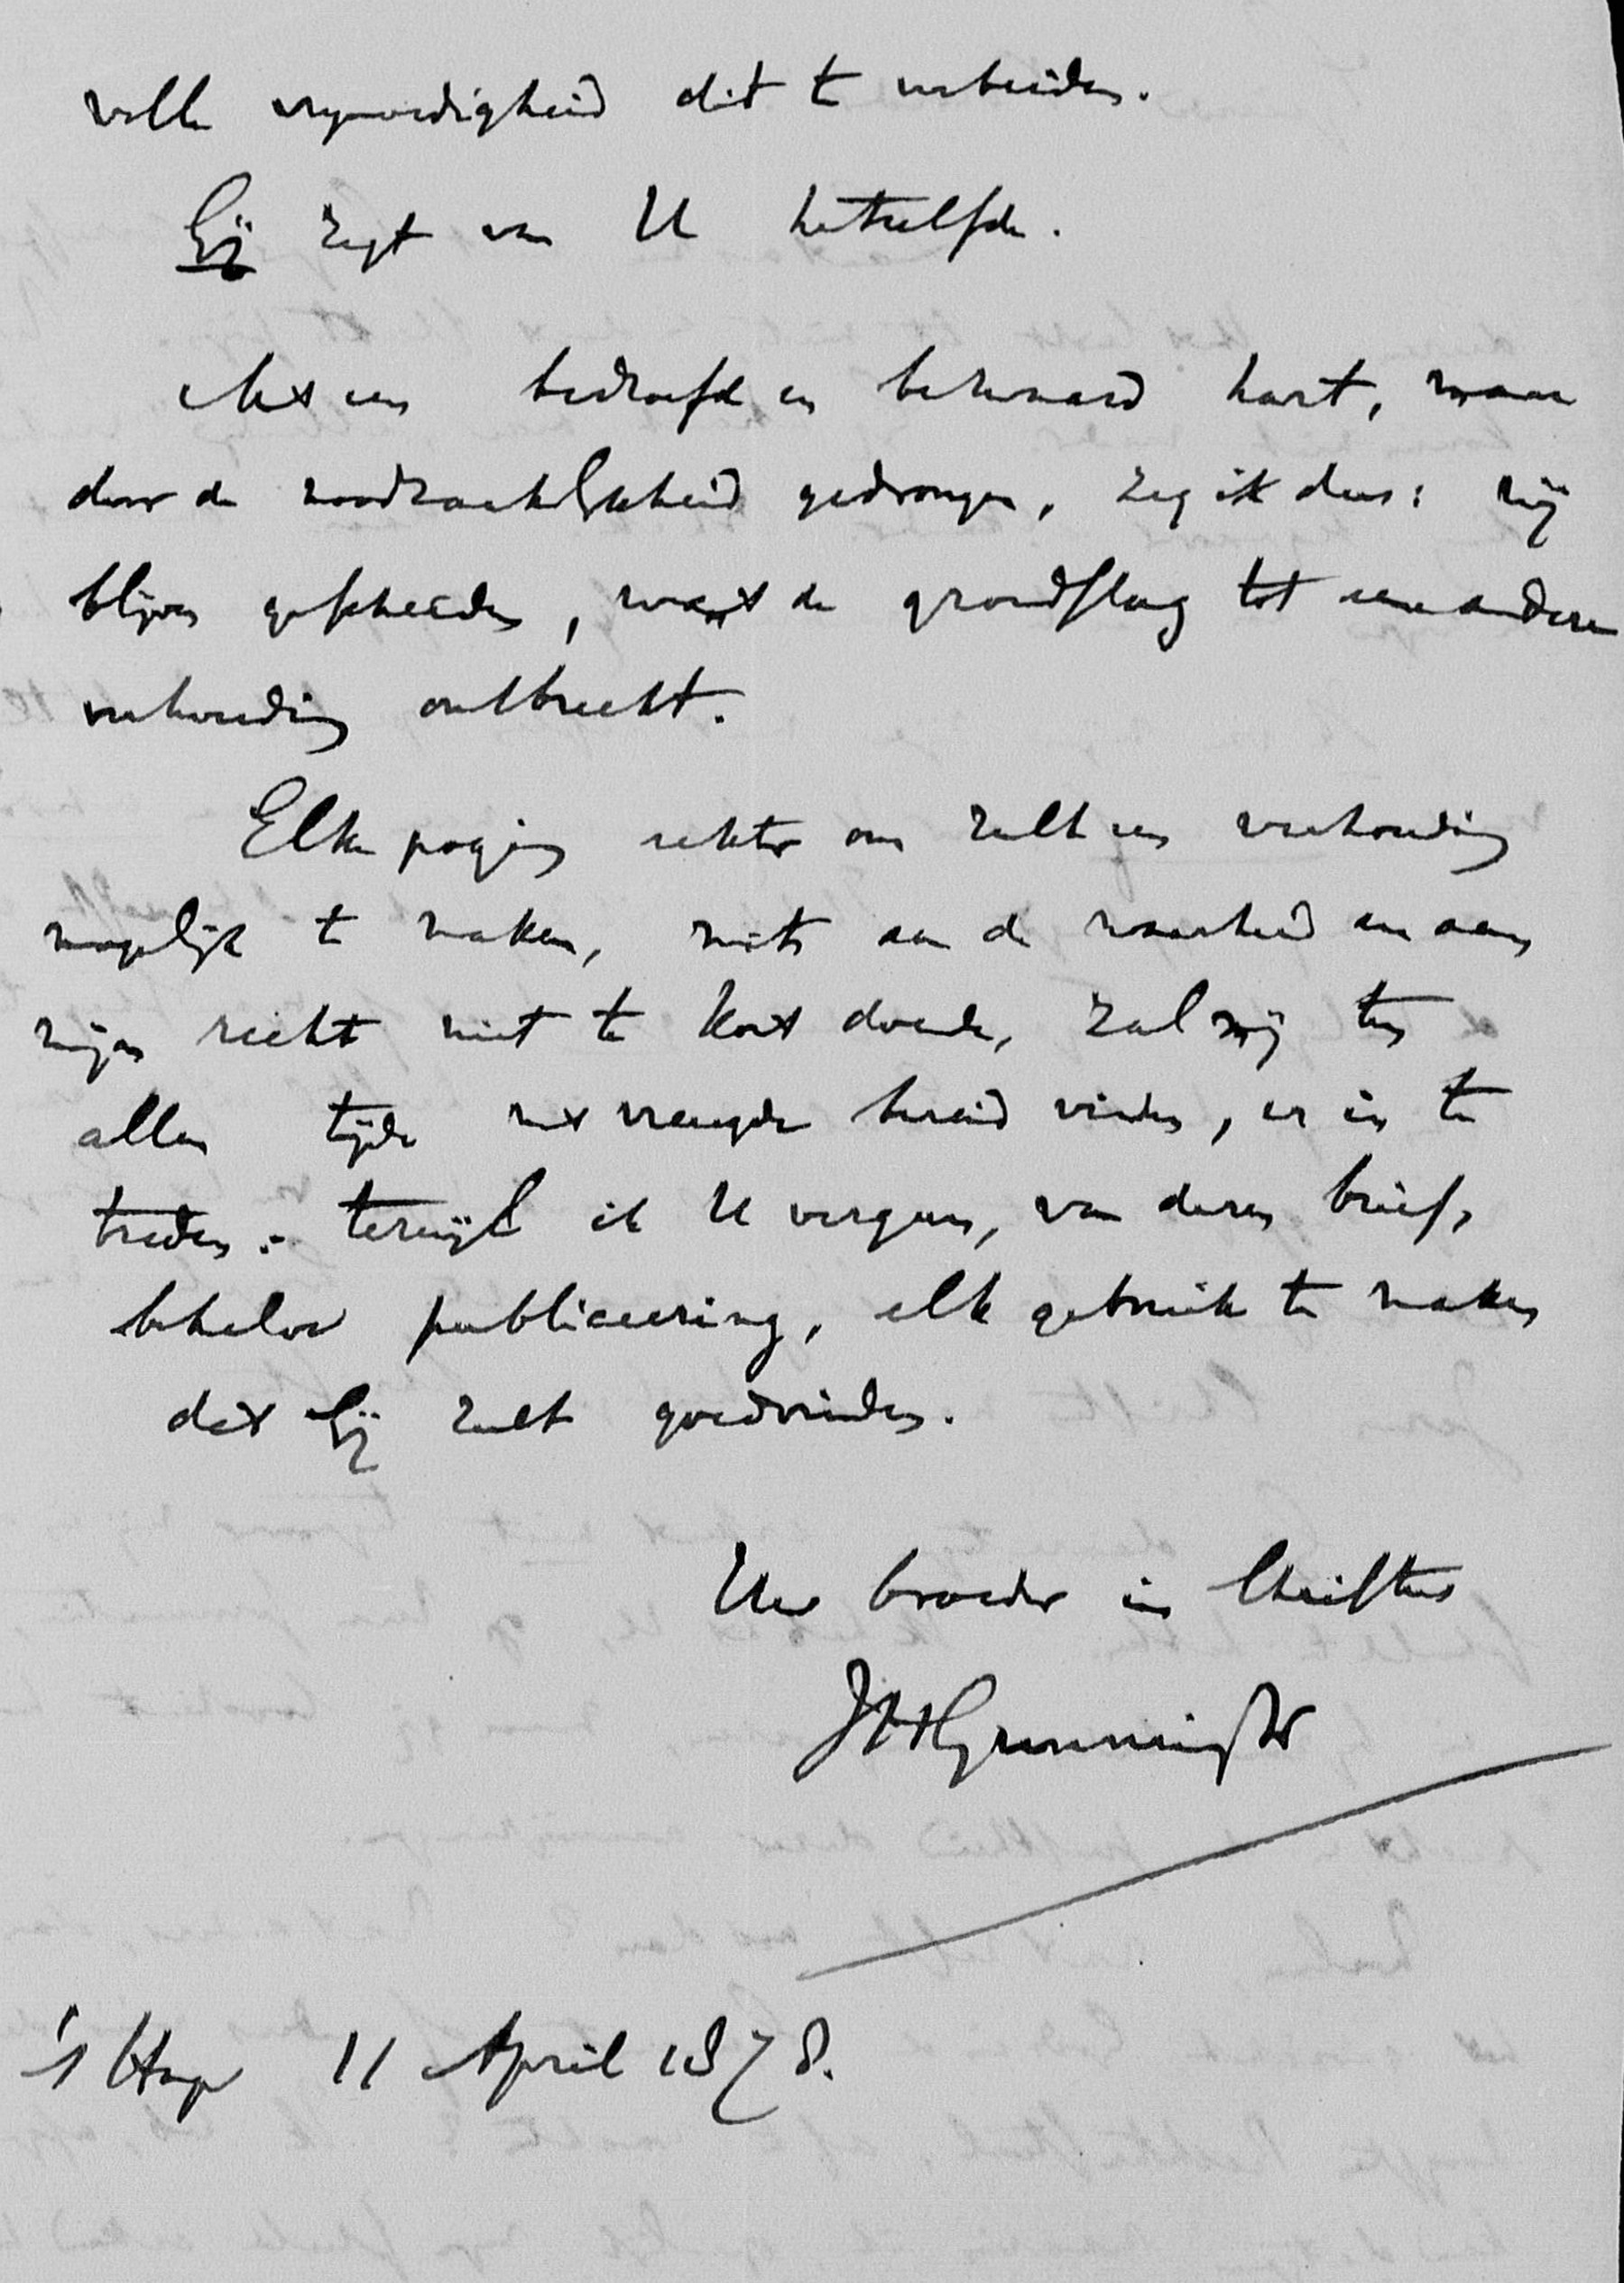 volle vrijmoedigheid dit te verbeiden.
Gij zegt van U hetzelfde.
Met een bedroefd en bezwaard hart, maar
door de noodzakelijkheid gedrongen, zeg ik dus: wij
blijven gescheiden, want de grondslag tot eene andere
verhouding ontbreekt.
Elke poging echter om zulk een verhouding
mogelijk te maken, mits aan de waarheid en aan
mijn recht niet te kort doende, zal mij ten
allen tijde met vreugde bereid vinden, er in te
treden:- terwijl ik U vergun, van dezen brief,
behalve publiceering, elk gebruik te maken
dat Gij zult goedvinden.
Uw broeder in Christus
JHGunningJr
's Hage 11 April 1878.